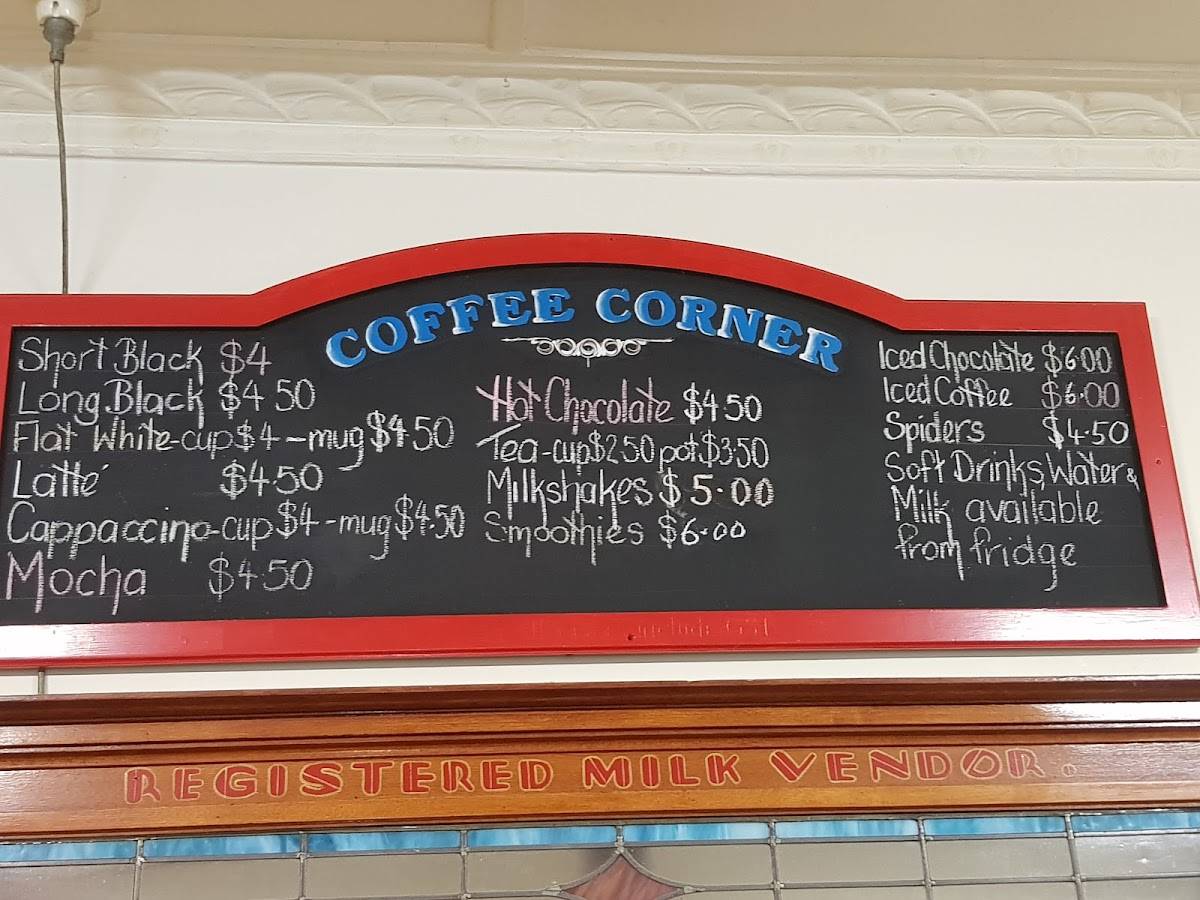 COFFEE CORNER
Short Black $4
Long Black $4 50
Flat White-cup $4 - mug $4.50
Latté $4.50
Cappaccino-cup $4 - mug $4.50
Mocha $4.50
Hot Chocolate $4 50
Tea - cup $2 50 pot $3.50
Milkshakes $5.00
Smoothies $6.00
Iced Chocolate $6.00
Iced Coffee $6.00
Spiders $4.50
Soft Drinks, Water &
Milk available
from fridge
include GST
REGISTERED MILK VENDOR.